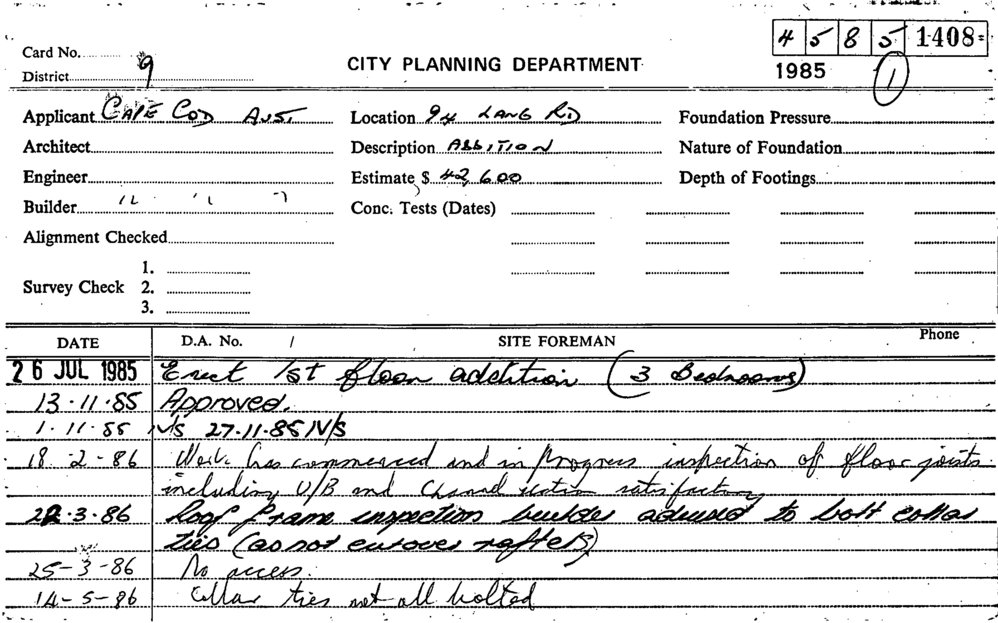 4 5 8 5 1408
Card No.
CITY PLANNING DEPARTMENT
District 9
1985 1
Applicant CAPE COD AUST. Location 94 LANG RD Foundation Pressure
Architect Description ADDITION Nature of Foundation
Engineer Estimate $ 42,600 Depth of Footings
Builder " " " Conc. Tests (Dates)
Alignment Checked
1.
Survey Check 2.
3.
DATE D.A. No. / SITE FOREMAN Phone
26 JUL 1985 Erect 1st floor addition (3 Bedrooms)
13.11.85 Approved.
1.11.85 N/S 27.11.85 N/S
18.2-86 Work has commenced and in progress inspection of floor joists
including U/B and Channel section satisfactory
22.3.86 Roof frame inspection builder advised to bolt collar
ties (as not cut over rafters)
25-3-86 No access.
14-5-86 Collar ties not all bolted